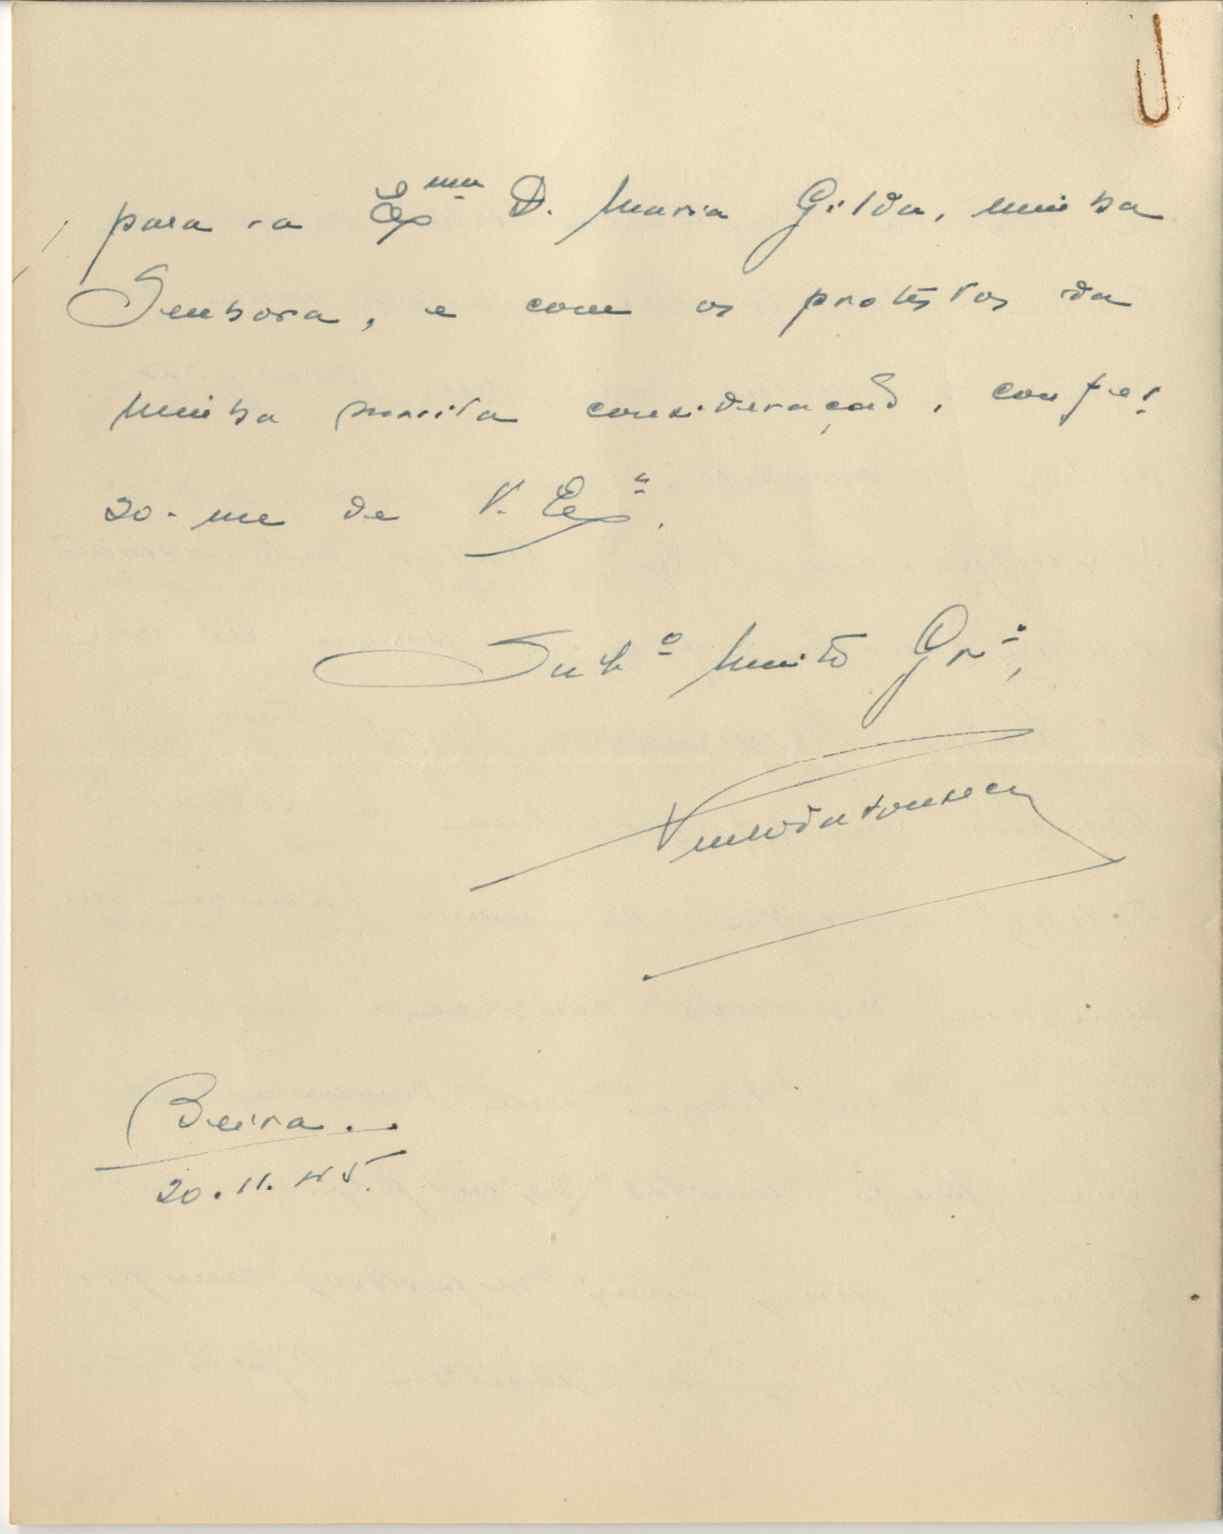 para a Exma D. Maria Gilda, minha
Senhora, e com os protestos da
minha muita consideração, confes
so-me de V. Exª.
Subº Muito Grº,
Beira..
20.11.45.